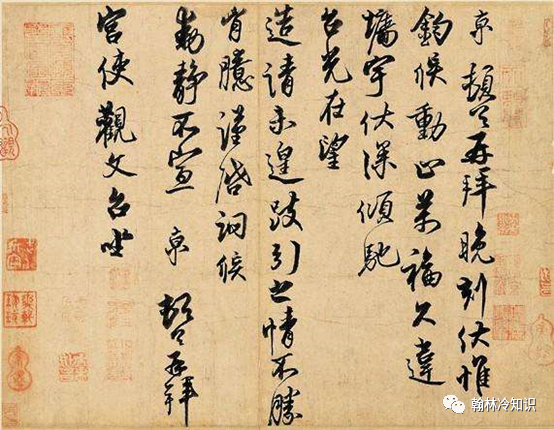 京 頓首再拜 晚刻伏惟
鈞候動止萬福久違
墉宇伏深傾馳
台光在望
造請未遑跂引之情不勝
胸臆謹啓詗候
動靜不宣 京 頓首再拜
宮使觀文台坐
翰林冷知识